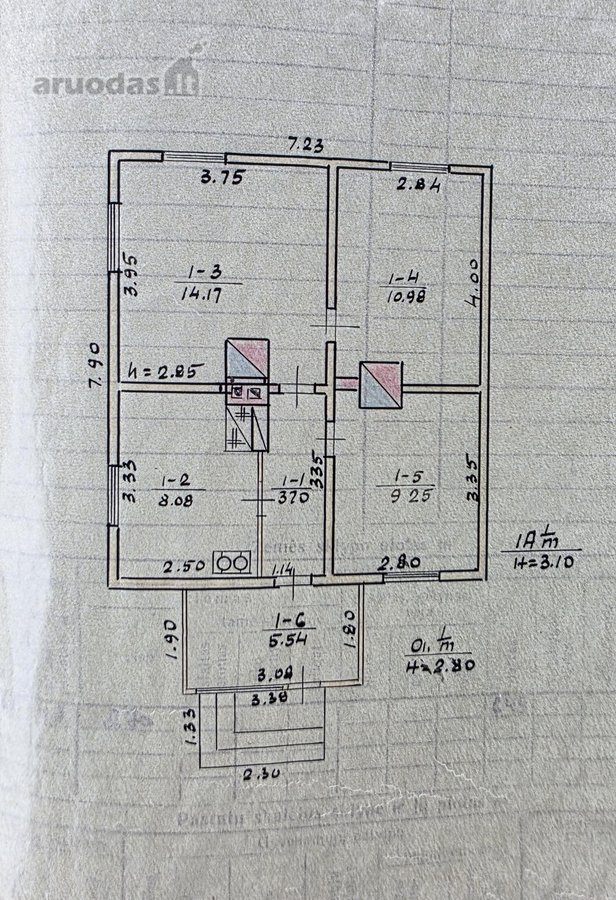 aruodas.lt
7.23
3.75
2.84
3.95
1-3
14.17
1-4
10.98
4.00
7.90
h = 2.85
3.33
1-2
8.08
1-1
3.70
3.35
1-5
9.25
3.35
2.50
1.14
2.80
1A 1/m
H=3.10
1.90
1-6
5.54
1.80
01. 1/m
H=2.80
3.08
3.38
1.33
2.30